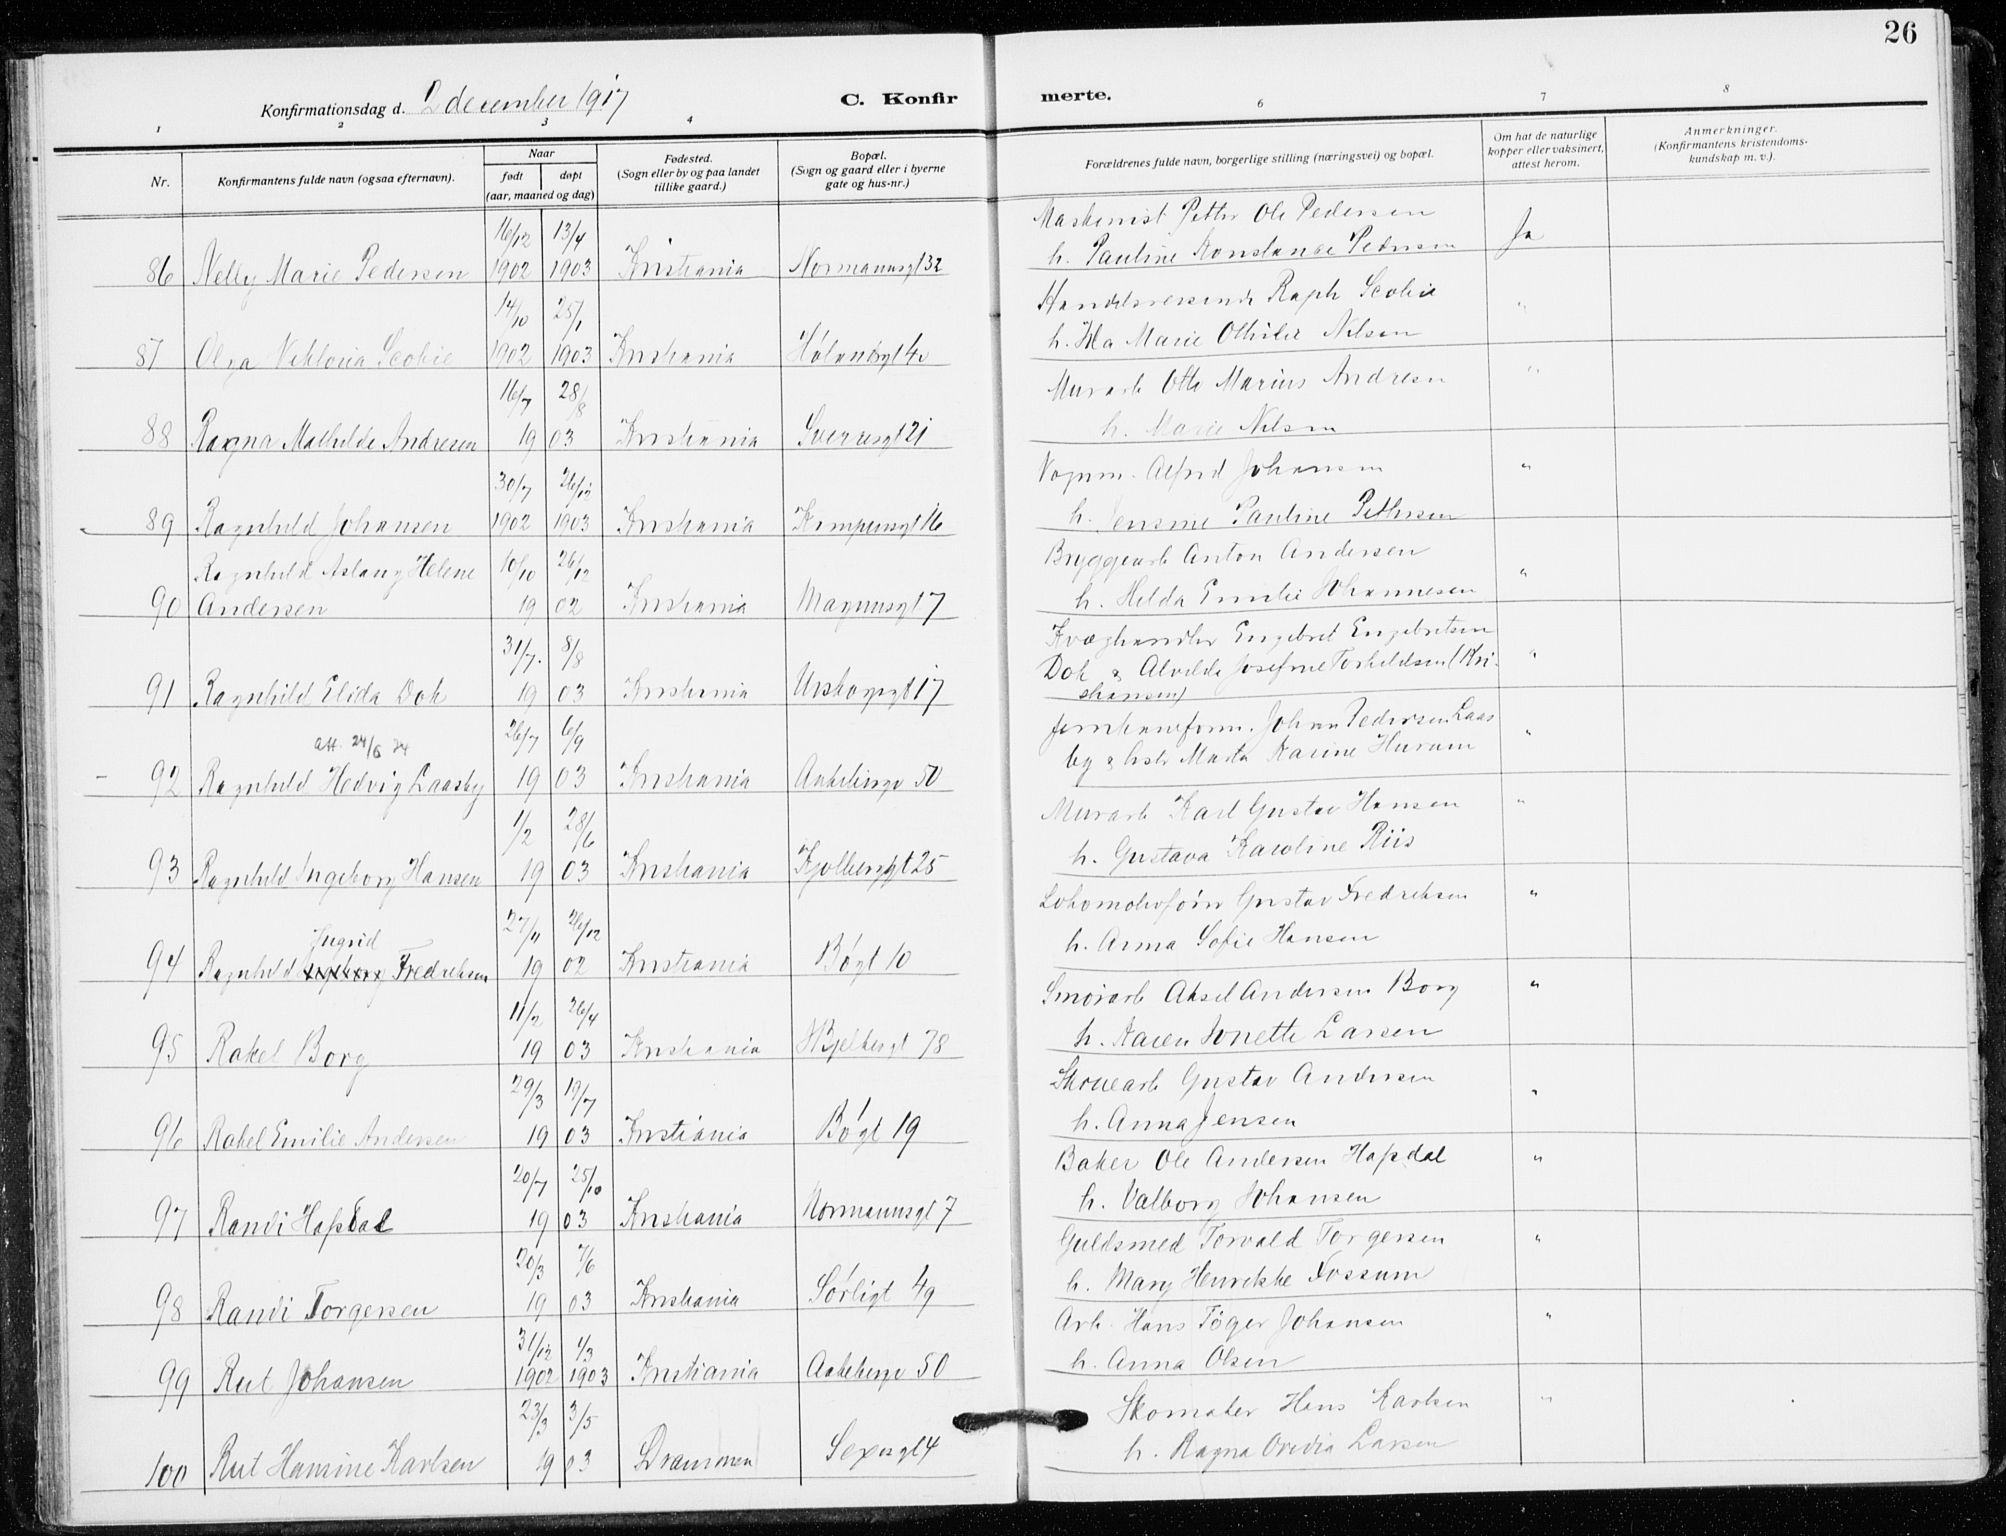 26
Konfirmationsdag d. 2 december 1917
C. Konfirmerte.
1 2 3 4 6 7 8
Nr.
Konfirmantens fulde navn (ogsaa efternavn).
Naar
født døpt
(aar, maaned og dag)
Fødested.
(Sogn eller by og paa landet
tillike gaard.)
Bopæl.
(Sogn og gaard eller i byerne
gate og hus-nr.)
Forældrenes fulde navn, borgerlige stilling (næringsvei) og bopæl.
Om hat de naturlige
kopper eller vaksinert,
attest herom.
Anmerkninger.
(Konfirmantens kristendoms-
kundskap m. v.).
16/12 13/4 Maskinist Petter Ole Pedersen
86 Nelly Marie Pedersen 1902 1903 Kristiania Normannsgt 32 h. Pauline Konstanse Pedersen Ja
14/10 25/1 Handelsreisende Raph Scobie "
87 Olga Viktoria Scobie 1902 1903 Kristiania Hølandsgt 40 h. Ida Marie Othilie Nilsen
16/7 28/8 Murarb Otto Marius Andresen "
88 Ragna Mathilde Andresen 19 03 Kristiania Sverresgt 21 h. Marie Nilsen
30/7 26/12 Vognm. Alfred Johansen "
89 Ragnhild Johansen 1902 1903 Kristiania Kampensgt 16 h. Jensine Pauline Pettersen
Ragnhild Aslaug Helene 10/10 26/12 Bryggearb Anton Andersen "
90 Andersen 19 02 Kristiania Magnusgt 7 h. Hilda Emilie Johannesen
31/7 8/8 Kvæghandler Engebret Engebretsen
91 Ragnhild Elida Dok 19 03 Kristiania Urskogsgt 17 Dok & Alvilde Josefine Torkildsen (Kri- "
stiansen)
att. 24/6 34 26/7 6/9 Jernbaneform. Johan Pedersen Laas
92 Ragnhild Hedvig Laasby 19 03 Kristiania Aakebergv 50 by & hstr Marta Karine Hurum "
1/2 28/6 Murarb Karl Gustav Hansen "
93 Ragnhild Ingeborg Hansen 19 03 Kristiania Kjølberggt 25 h. Gustava Karoline Riis
Ingrid 27/11 26/12 Lokomotivfører Gustav Fredriksen "
94 Ragnhild Ingeborg Fredriksen 19 02 Kristiania Bøgt 10 h. Anna Sofie Hansen
11/2 26/4 Smørarb Aksel Andersen Borg "
95 Rakel Borg 19 03 Kristiania Hjelbergt 78 h. Karen Jonette Larsen
29/3 19/7 Skouearb Gustav Andersen
96 Rakel Emilie Andersen 19 03 Kristiania Bøgt 19 h. Anna Jensen "
20/7 25/10 Baker Ole Andersen Hafsdal "
97 Randi Hafsdal 19 03 Kristiania Normannsgt 7 h. Valborg Johansen
20/3 7/6 Guldsmed Torvald Torgersen "
98 Randi Torgersen 19 03 Kristiania Sørligt 49 h. Mary Henrikke Fossum
31/12 1/3 Arb. Hans Tøger Johansen "
99 Rut Johansen 1902 1903 Kristiania Aakebergv 50 h. Anna Olsen
23/3 3/5 Skomaker Hans Karlsen "
100 Rut Hamine Karlsen 19 03 Drammen Sexesgt 4 h. Ragna Ovidia Larsen